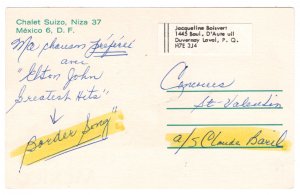 Chalet Suizo, Niza 37
México 6, D. F.
Ma chanson préférée
avec
"Elton John
Greatest Hits"
"Border Song"
Jacqueline Boisvert
1445 Boul. D'Auteuil
Duvernay Laval, P. Q.
H7E 3J4
Concours
St-Valentin
a/s Claude Baril